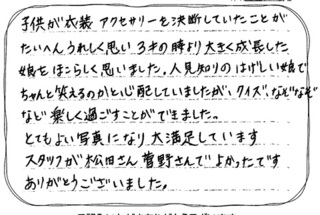 子供が衣装 アクセサリーを決断していたことが
たいへんうれしく思い 3才の時より大きく成長した
娘をほこらしく思いました。人見知りのはげしい娘で
ちゃんと笑えるのかと心配していましたが、クイズ、なぞなぞ
など 楽しく過ごすことができました。
とてもよい写真になり 大満足しています
スタッフが松田さん 菅野さんでよかったです
ありがとうございました。